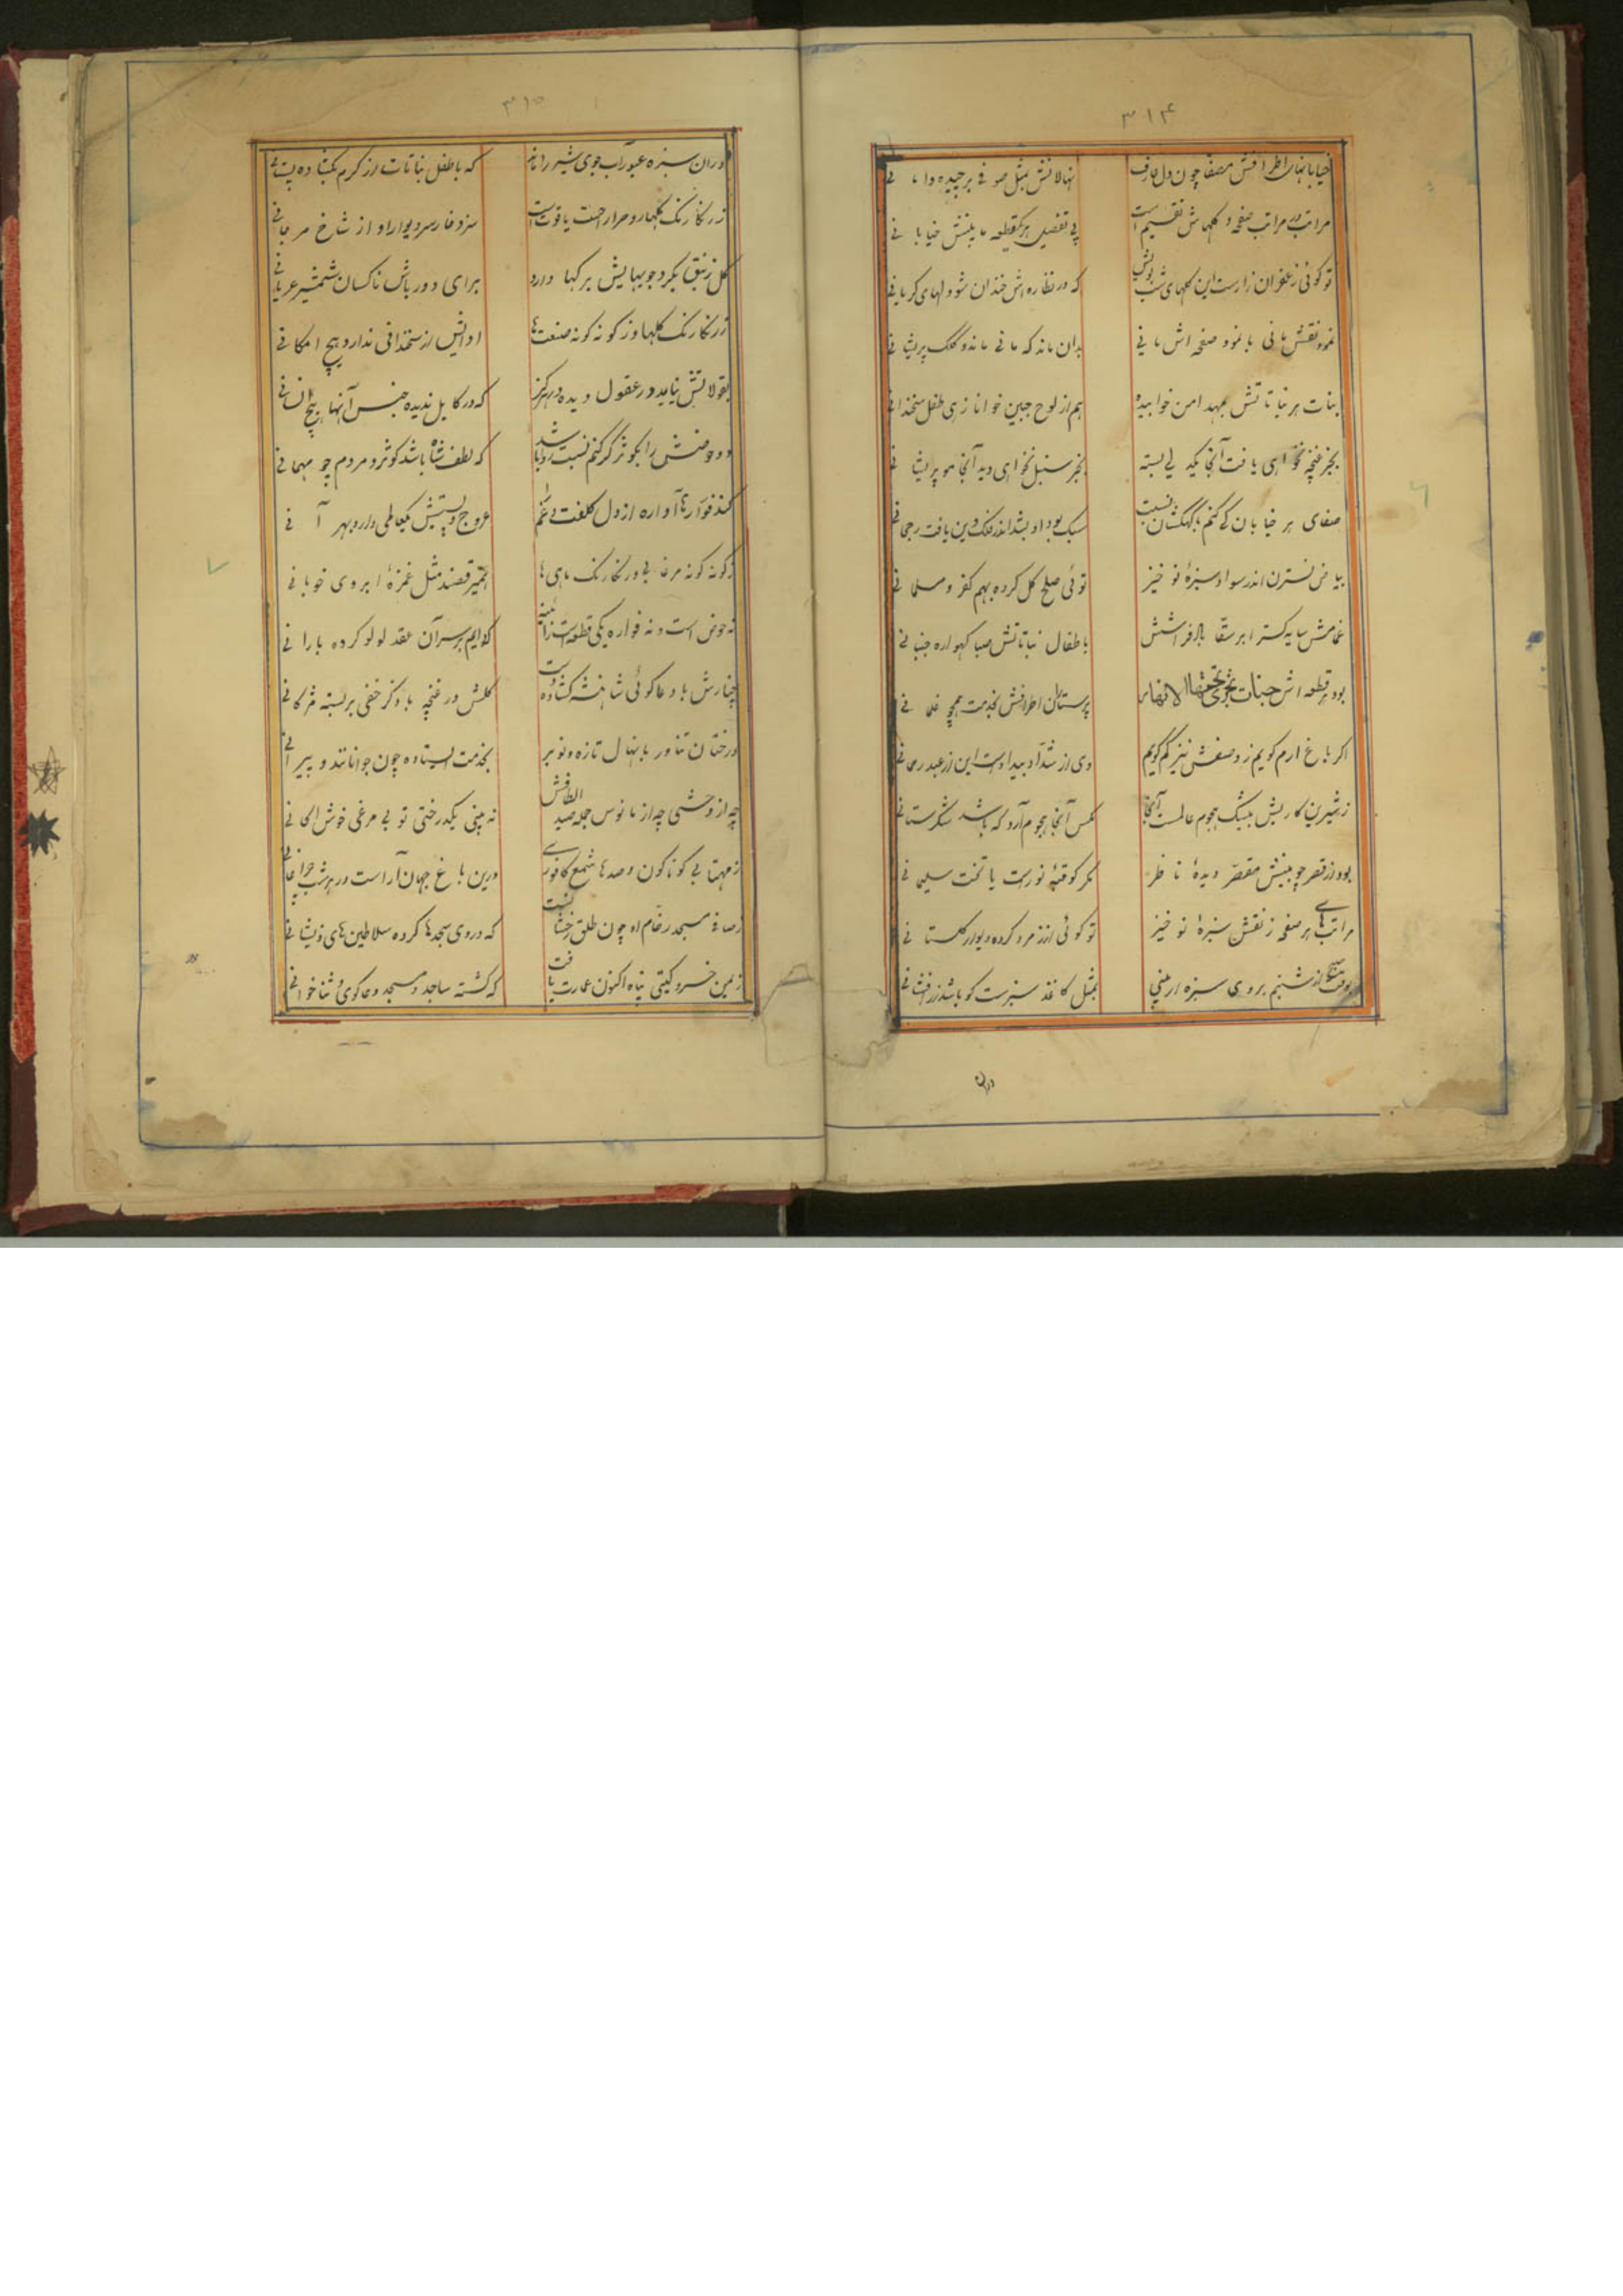 ۳۱۴
خیابانهای اطرافش مصفا چون دل عارف نهالانش بمثل صوفی برچیده دامانی
مراتب در مراتب صفحه و گلهاش تقسیم است پی تفصیل هر قطعه مابینش خیابانی
تو گوئی زعفران زارست این گلهای شب بویش که در نظاره اش خندان شود دلهای گریانی
نموده نقش مانی با نمود صفحه اش مانی بدان ماند که مانی مانده و کلک پریشانی
بنات هر نباتاتش بمهد امن خوابیده هم از لوح جبین خوانا زهی طفل سخندانی
بجز غنچه نخواهی یافت آنجا یکدلی بسته بجز سنبل نخواهی دید آنجا مو پریشانی
صفای هر خیابان کی کنم با کهکشان نسبت سبک بود او بشد اندر فلک وین یافت رجحانی
بیاض نسترن اندر سواد سبزهٔ نوخیز توئی صلح کل کرده بهم کفر و مسلمانی
غمامش سایه گستر ابر سقا باد فراشش باطفال نباتاتش صبا گهواره جنبانی
بود هر قطعه اش جنات تجری تحتها الانهار پرستاران اطرافش بخدمت همچو غلمانی
اگر باغ ارم گویم ز وصفش نیز کم گویم وی از شداد بیدادست این از عبد رحمانی
ز شیرین کاریش بیشک هجوم عالمست آنجا مگس آنجا هجوم آرد که باشد شکرستانی
بود از قصر چو بینش مقصر دیدهٔ ناظر مگر کو قبهٔ نورست یا تخت سلیمانی
مراتبهای هر صفحه ز نقش سبزهٔ نوخیز تو گوئی از زمرد کرده دیوار گلستانی
بوقت صبح از شبنم بروی سبزه ار بینی بمثل کاغذ سبزست کو باشد زرافشانی
دران
۳۱۵
دران سبزه عبور آب جوی شیر را ماند که با طفل نباتات از کرم بگشاده پستانی
ز رنگارنگ گلها رو حرارحت یاقوت است سزد خار سر دیوار او از شاخ مرجانی
گل زنبق بگرد جویهایش برگها دارد برای دورباش ناکسان شمشیر عریانی
ز رنگارنگ گلها وز گونه گونه صنعتها ادایش از سخندانی ندارد هیچ امکانی
بقولاتش نیاید در عقول و دیده هرگز که در کابل ندیده جنس آنها هیچ انسانی
دو حوضش را بکوثر گر کنم نسبت روا باشد که لطف شاه باشد کوثر و مردم چو مهمانی
کند فوارها آواره از دل کلفت و غم را عروج و پستیش یکجا همی دارد بهر آنی
ز گونه گونه مرغابی و رنگارنگ ماهی ها همیرقصند مثل غمزهٔ ابروی خوبانی
نه حوض است و نه فواره یکی قطعه است ز آئینه که دایم بر سر آن عقد لولو کرده بارانی
چنارش با دعاگوئی شاهنشه گشاده دست گلش در غنچه با ذکر خفی بر بسته مژگانی
درختان تناور با نهال تازه و نوبر بخدمت ایستاده چون جوانانند و پیرانی
چه از وحشی چه از مانوس جمله صید الطافش نه بینی یکدرختی تو بی مرغی خوش الحانی
ز مهتابی گوناگون و صدها شمع کافوری درین باغ جهان آراست در هر شب چراغانی
ز صافی مسجد رخام او چون طلق رخشا نست که در وی سجدها کرده سلاطین های ذیشانی
ز یمن خسرو گیتی پناه اکنون عمارت یافت که گشته ساجد و مسجد دعاگوی و ثناخوانی